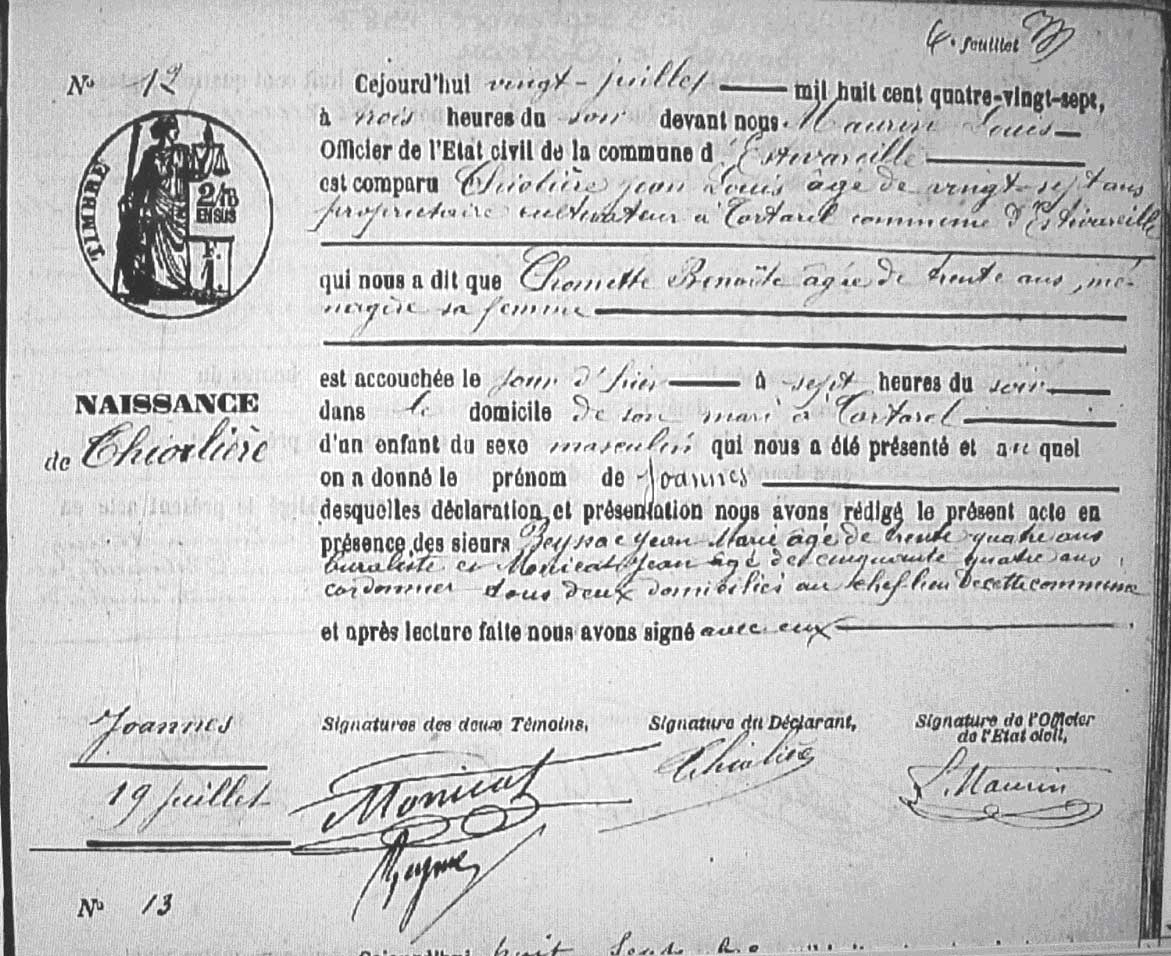 4. feuillet
No 12
Cejourd'hui vingt-juillet mil huit cent quatre-vingt-sept,
à trois heures du soir devant nous Maurin Louis
Officier de l'Etat civil de la commune d'Estivareille
est comparu Thiolière Jean Louis âgé de vingt-sept ans
propriétaire cultivateur à Tortorel commune d'Estivareille
qui nous a dit que Chomette Benoîte âgée de trente ans, mé-
nagère sa femme
est accouchée le jour d'hier à sept heures du soir
dans le domicile de son mari à Tortorel
d'un enfant du sexe masculin qui nous a été présenté et au quel
on a donné le prénom de Joannes
desquelles déclaration et présentation nous avons rédigé le présent acte en
présence des sieurs Jean Marie âgé de trente quatre ans
buraliste et Monicat Jean âgé de cinquante quatre ans
cordonnier tous deux domiciliés au chef lieu de cette commune
et après lecture faite nous avons signé avec eux
TIMBRE
2/10
EN SUS
NAISSANCE
de Thiolière
Joannes
19 juillet
Signatures des deux Témoins,
Monicat
Signature du Déclarant,
Thiolière
Signature de l'Officier
de l'Etat civil,
L. Maurin
No 13
Cejourd'hui huit